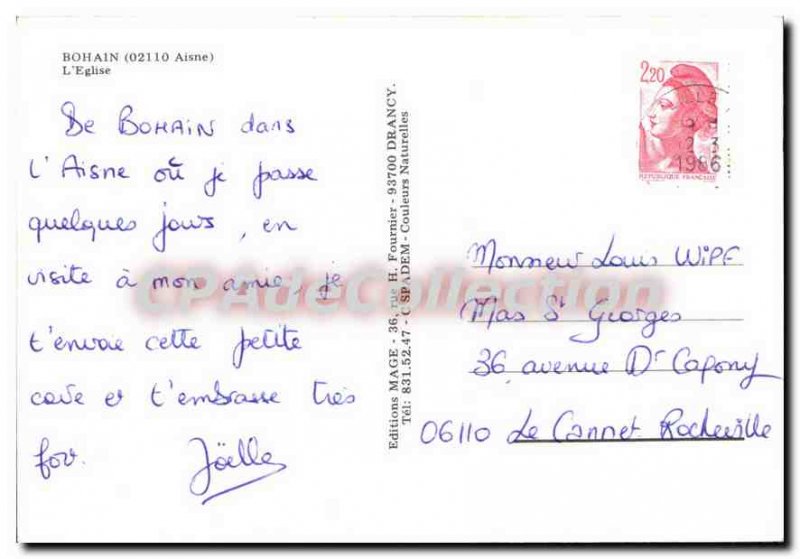 BOHAIN (02110 Aisne)
L'Eglise
De BOHAIN dans
l'Aisne où je passe
quelques jours, en
visite à mon amie, je
t'envoie cette petite
carte et t'embrasse très
for.
Joëlle
Editions MAGE - 36, rue H. Fournier - 93700 DRANCY.
Tél: 831.52.47 - C SPADEM - Couleurs Naturelles
2,20
2 3
1986
REPUBLIQUE FRANÇAISE
Monsieur Louis WIPF
Mas St Georges
36 avenue Dr Capony
06110 Le Cannet Rocheville
CPAdeCollection